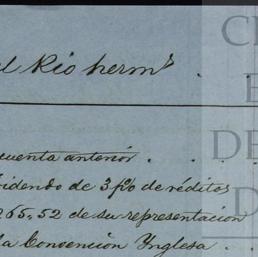 el Rio herm^s . .
cuenta anterior . . .
idendo de 3 p% de réditos
265,52 de su representacion
la Convencion Ynglesa . .
C
E
DE
D